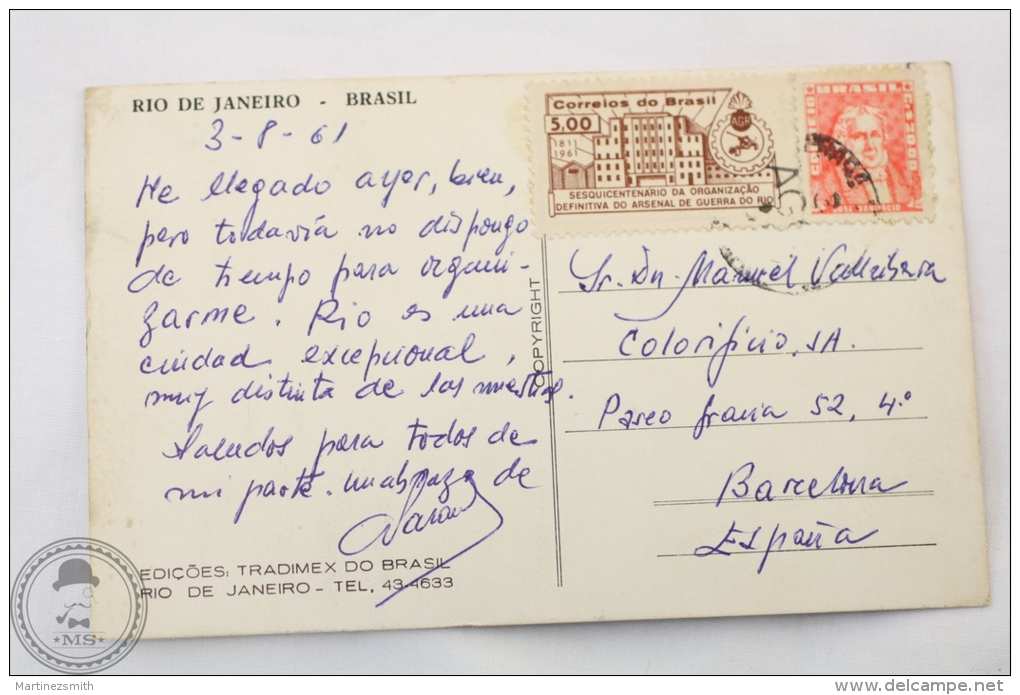 RIO DE JANEIRO - BRASIL
3-8-61
He llegado ayer, bien,
pero todavía no dispongo
de tiempo para organi-
zarme. Rio es una
ciudad excepcional,
muy distinta de las nuestras.
Saludos para todos de
mi parte. Un abrazo de
EDIÇÕES: TRADIMEX DO BRASIL
RIO DE JANEIRO - TEL, 43-4633
COPYRIGHT
Correios do Brasil
5,00
1811
1961
AGR
SESQUICENTENARIO DA ORGANIZAÇÃO
DEFINITIVA DO ARSENAL DE GUERRA DO RIO
BRASIL
CORREIO
JOSÉ BONIFACIO
Sr. Dn. Manuel Vallribera
Colorificio, SA.
Paseo Gracia 52, 4º
Barcelona
España
MS
Martinezsmith
delcampe.net